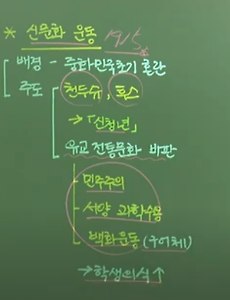 * 신문화 운동 1915
배경 - 중화민국초기 혼란
주도 천두슈, 후스
→「신청년」
유교 전통문화 비판
민주주의
서양 과학수용
백화운동 (구어체)
→학생의식↑